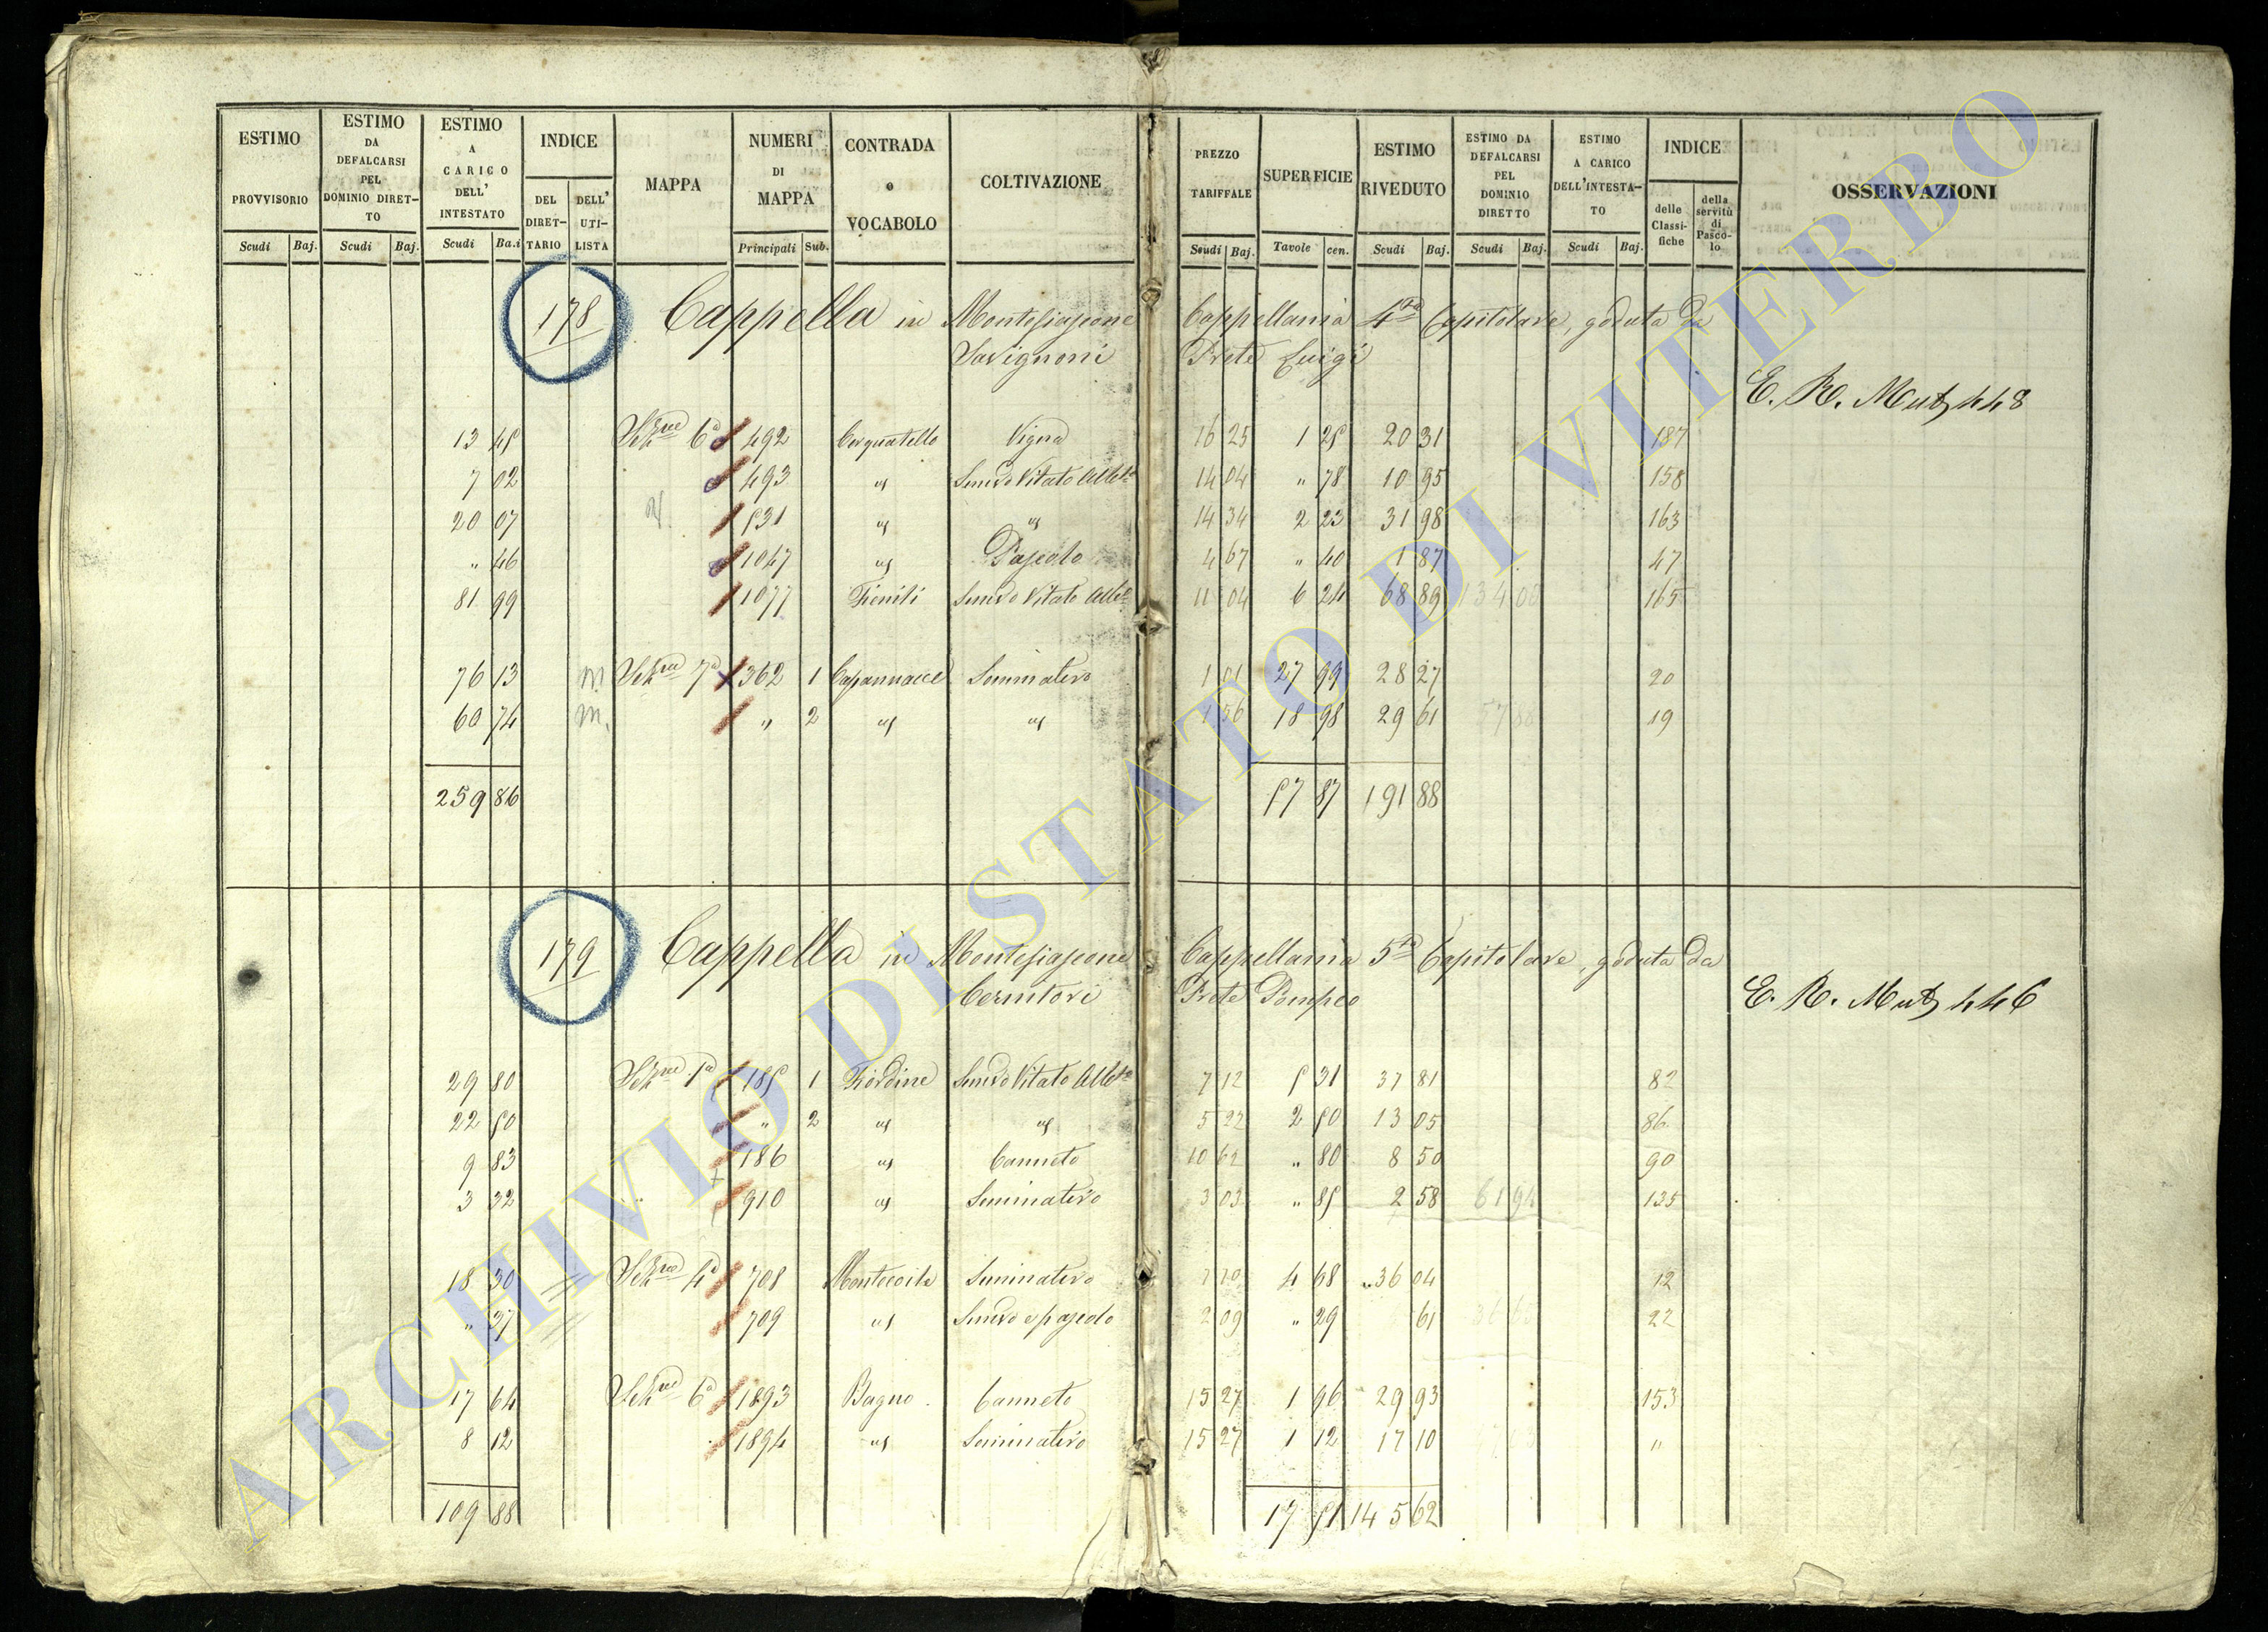 ESTIMO PROVVISORIO | ESTIMO DA DEFALCARSI PEL DOMINIO DIRET-TO | ESTIMO A CARICO DELL' INTESTATO | INDICE | MAPPA | NUMERI DI MAPPA | CONTRADA o VOCABOLO | COLTIVAZIONE | PREZZO TARIFFALE | SUPERFICIE | ESTIMO RIVEDUTO | ESTIMO DA DEFALCARSI PEL DOMINIO DIRETTO | ESTIMO A CARICO DELL'INTESTA-TO | INDICE | OSSERVAZIONI
DEL DIRET-TARIO | DELL' UTI-LISTA | delle Classi-fiche | della servitù di Pasco-lo
Scudi | Baj. | Scudi | Baj. | Scudi | Ba.i | Principali | Sub. | Scudi | Baj. | Tavole | cen. | Scudi | Baj. | Scudi | Baj. | Scudi | Baj.
178 Cappella in Montefiascone Cappellania 4ta Capitolare, goduta da
Savignoni Prete Luigi
E. R. Mut 448
13 45 | 6a | 492 | Cerquatello | Vigna | 16 25 | 1 25 | 20 31 | 187
7 02 | 493 | " | Semvo Vitato Albto | 14 04 | " 78 | 10 95 | 158
20 07 | 531 | " | " | 14 34 | 2 23 | 31 98 | 163
" 46 | 1047 | " | Pascolo | 4 67 | " 40 | 1 87 | 47
81 99 | 1077 | Fienili | Semvo Vitato Albto | 11 04 | 6 24 | 68 89 | 165
76 13 | m. | 7a | 362 | 1 | Capannacce | Seminativo | 1 01 | 27 99 | 28 27 | 20
60 74 | m. | " | 2 | " | " | 1 56 | 18 98 | 29 61 | 57 88 | 19
259 86 | 57 87 | 191 88
179 Cappella in Montefiascone Cappellania 5ta Capitolare, goduta da
Cernitori Prete Pompeo
E. R. Mut 446
29 80 | 185 | 1 | Fiordine | Semvo Vitato Albto | 7 12 | 5 31 | 37 81 | 82
22 50 | " | 2 | " | " | 5 22 | 2 50 | 13 05 | 86
9 83 | 186 | " | Canneto | 10 62 | " 80 | 8 50 | 90
3 32 | 910 | " | Seminativo | 3 03 | " 85 | 2 58 | 61 94 | 135
18 30 | 4a | 708 | Seminativo | 4 68 | 36 04 | 12
" 37 | 709 | " | Semvo e pascolo | 2 09 | " 29 | 61 | 22
17 64 | 6a | 1893 | Bagno | Canneto | 15 27 | 1 96 | 29 93 | 153
8 12 | 1894 | " | Seminativo | 15 27 | 1 12 | 17 10 | "
109 88 | 17 51 | 145 62
ARCHIVIO DI STATO DI VITERBO